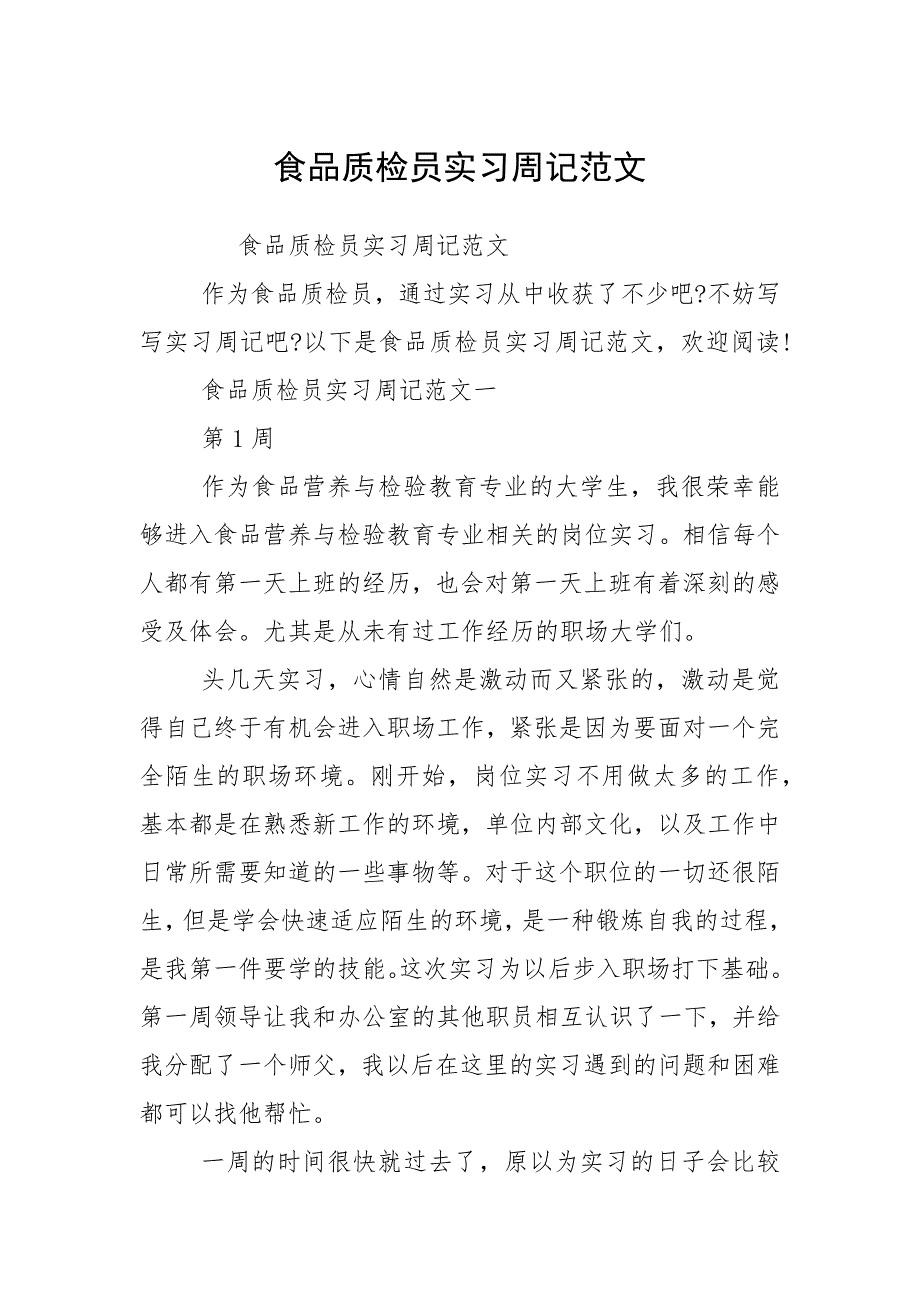 食品质检员实习周记范文
食品质检员实习周记范文
作为食品质检员，通过实习从中收获了不少吧?不妨写
写实习周记吧?以下是食品质检员实习周记范文，欢迎阅读!
食品质检员实习周记范文一
第 1 周
作为食品营养与检验教育专业的大学生，我很荣幸能
够进入食品营养与检验教育专业相关的岗位实习。相信每个
人都有第一天上班的经历，也会对第一天上班有着深刻的感
受及体会。尤其是从未有过工作经历的职场大学们。
头几天实习，心情自然是激动而又紧张的，激动是觉
得自己终于有机会进入职场工作，紧张是因为要面对一个完
全陌生的职场环境。刚开始，岗位实习不用做太多的工作，
基本都是在熟悉新工作的环境，单位内部文化，以及工作中
日常所需要知道的一些事物等。对于这个职位的一切还很陌
生，但是学会快速适应陌生的环境，是一种锻炼自我的过程，
是我第一件要学的技能。这次实习为以后步入职场打下基础。
第一周领导让我和办公室的其他职员相互认识了一下，并给
我分配了一个师父，我以后在这里的实习遇到的问题和困难
都可以找他帮忙。
一周的时间很快就过去了，原以为实习的日子会比较